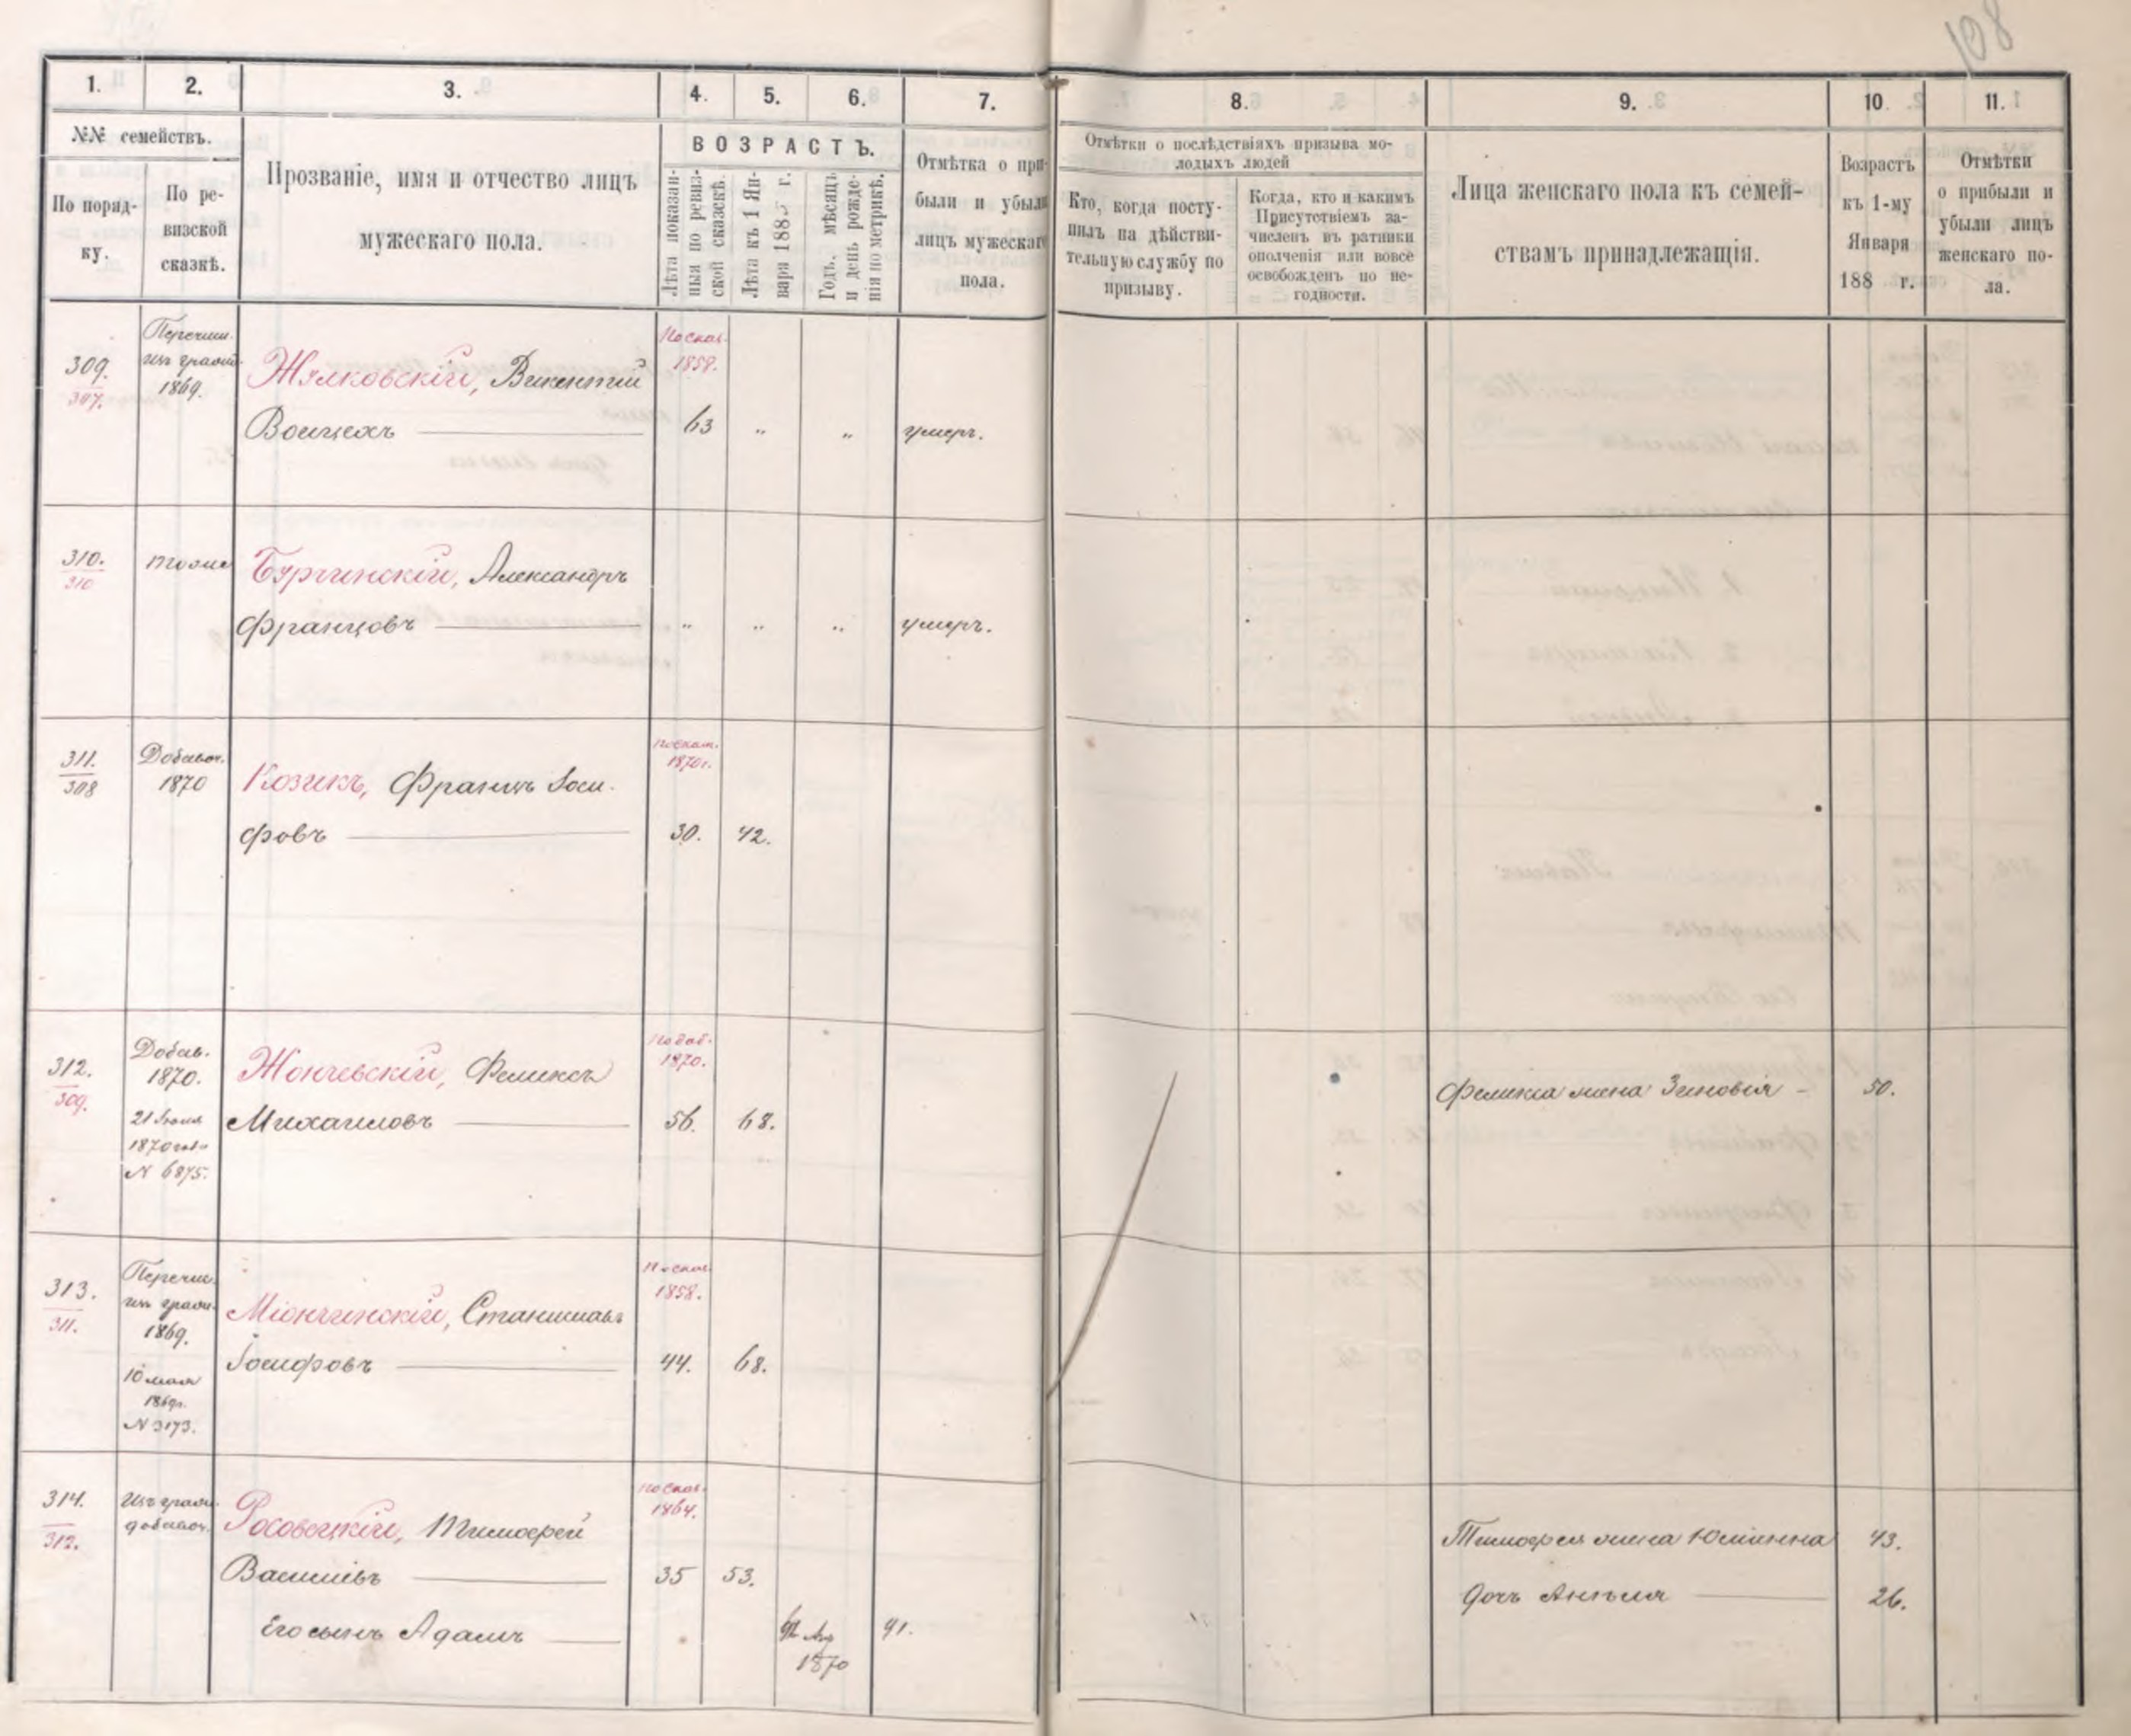 108
1. 2. 3. 4. 5. 6. 7. 8. 9. 10. 11.
№№ семействъ.
По поряд-
ку.
По ре-
визской
сказкѣ.
Прозваніе, имя и отчество лицъ
мужескаго пола.
ВОЗРАСТЪ.
Лѣта показан-
ныя по ревиз-
ской сказкѣ.
Лѣта къ 1 Ян-
варя 1885 г.
Годъ, мѣсяцъ
и день рожде-
нія по метрикѣ.
Отмѣтка о при-
были и убыли
лицъ мужескаго
пола.
Отмѣтки о послѣдствіяхъ призыва мо-
лодыхъ людей
Кто, когда посту-
пилъ на дѣйстви-
тельную службу по
призыву.
Когда, кто и какимъ
Присутствіемъ за-
численъ въ ратники
ополченія или вовсе
освобожденъ по не-
годности.
Лица женскаго пола къ семей-
ствамъ принадлежащія.
Возрастъ
къ 1-му
Января
188 г.
Отмѣтки
о прибыли и
убыли лицъ
женскаго по-
ла.
309.
307.
Перечи
изъ гражд
1869.
Жялковскій, Викентій
Войцехъ
По сказ.
1858.
63 " " умеръ.
310.
310
тоже
Бургинскій, Александръ
Францовъ " " " умеръ.
311.
308
Добавоч.
1870
Козикъ, Францъ Іоси-
фовъ
По сказ.
1870г.
30. 42.
312.
309.
Добав.
1870.
21 Іюня
1870 года
N 6875.
Жончевскій, Феликсъ
Михаиловъ
По доб.
1870.
56. 68.
Феликса жена Зиновія - 50.
313.
311.
Перечи
изъ граж.
1869.
10 мая
1869г.
N 3173.
Міончинскій, Станиславъ
Іосифовъ
По сказ.
1858.
44. 68.
314.
312.
Изъ граж.
добавоч.
Росовецкій, Тимофей
Василіевъ
По сказ.
1864.
35 53.
Его сынъ Адамъ
1870
91.
Тимофея жена Юліанна 43.
дочь Анѣля 26.